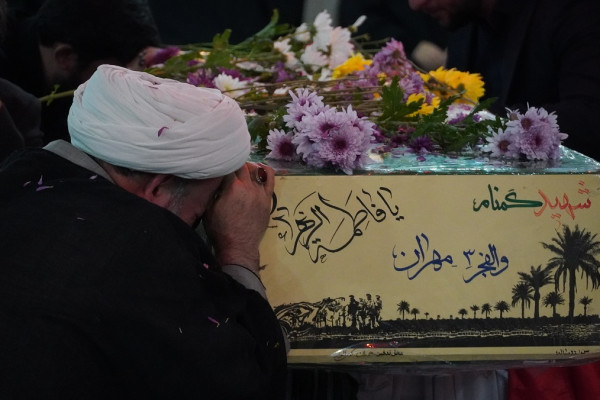 شهید گمنام
یا فاطمة الزهرا
والفجر ۳ مهران